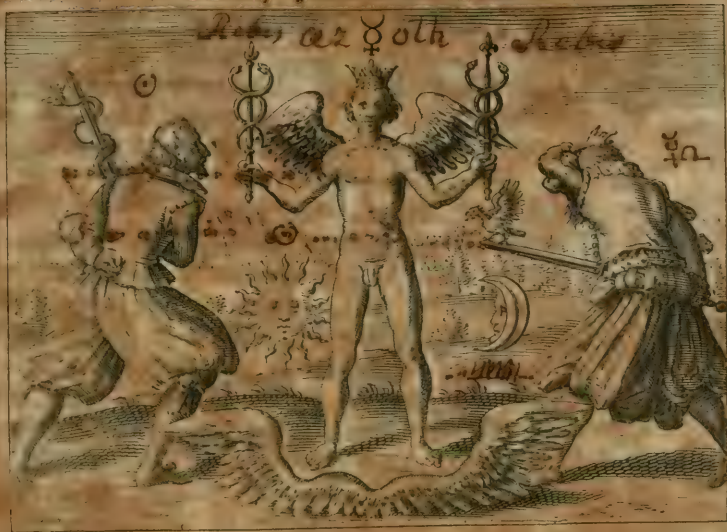 Rebis az☿oth Rebis